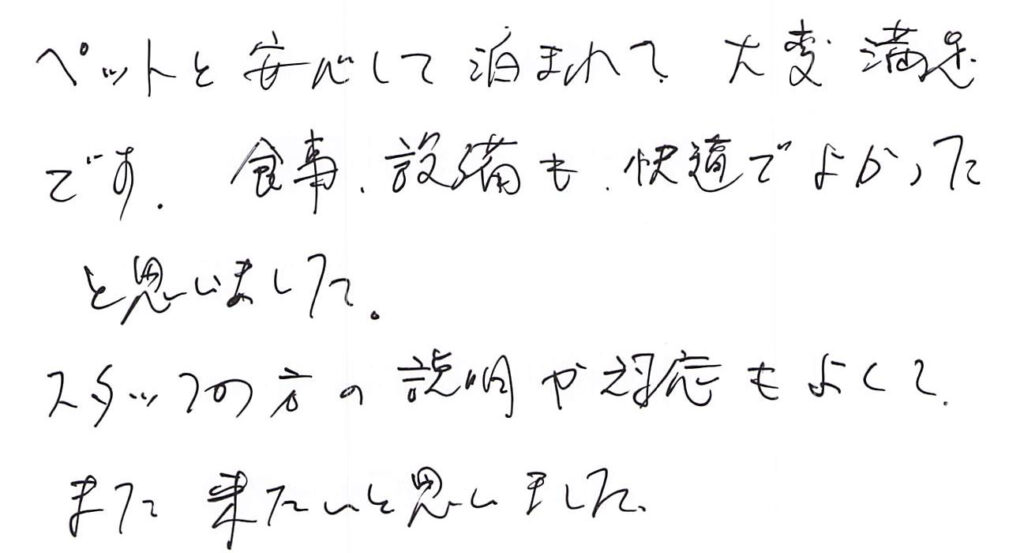 ペットと安心して泊まれて、大変満足
です。食事、設備も、快適でよかった
と思いました。
スタッフの方の説明や対応もよくて、
また来たいと思いました。